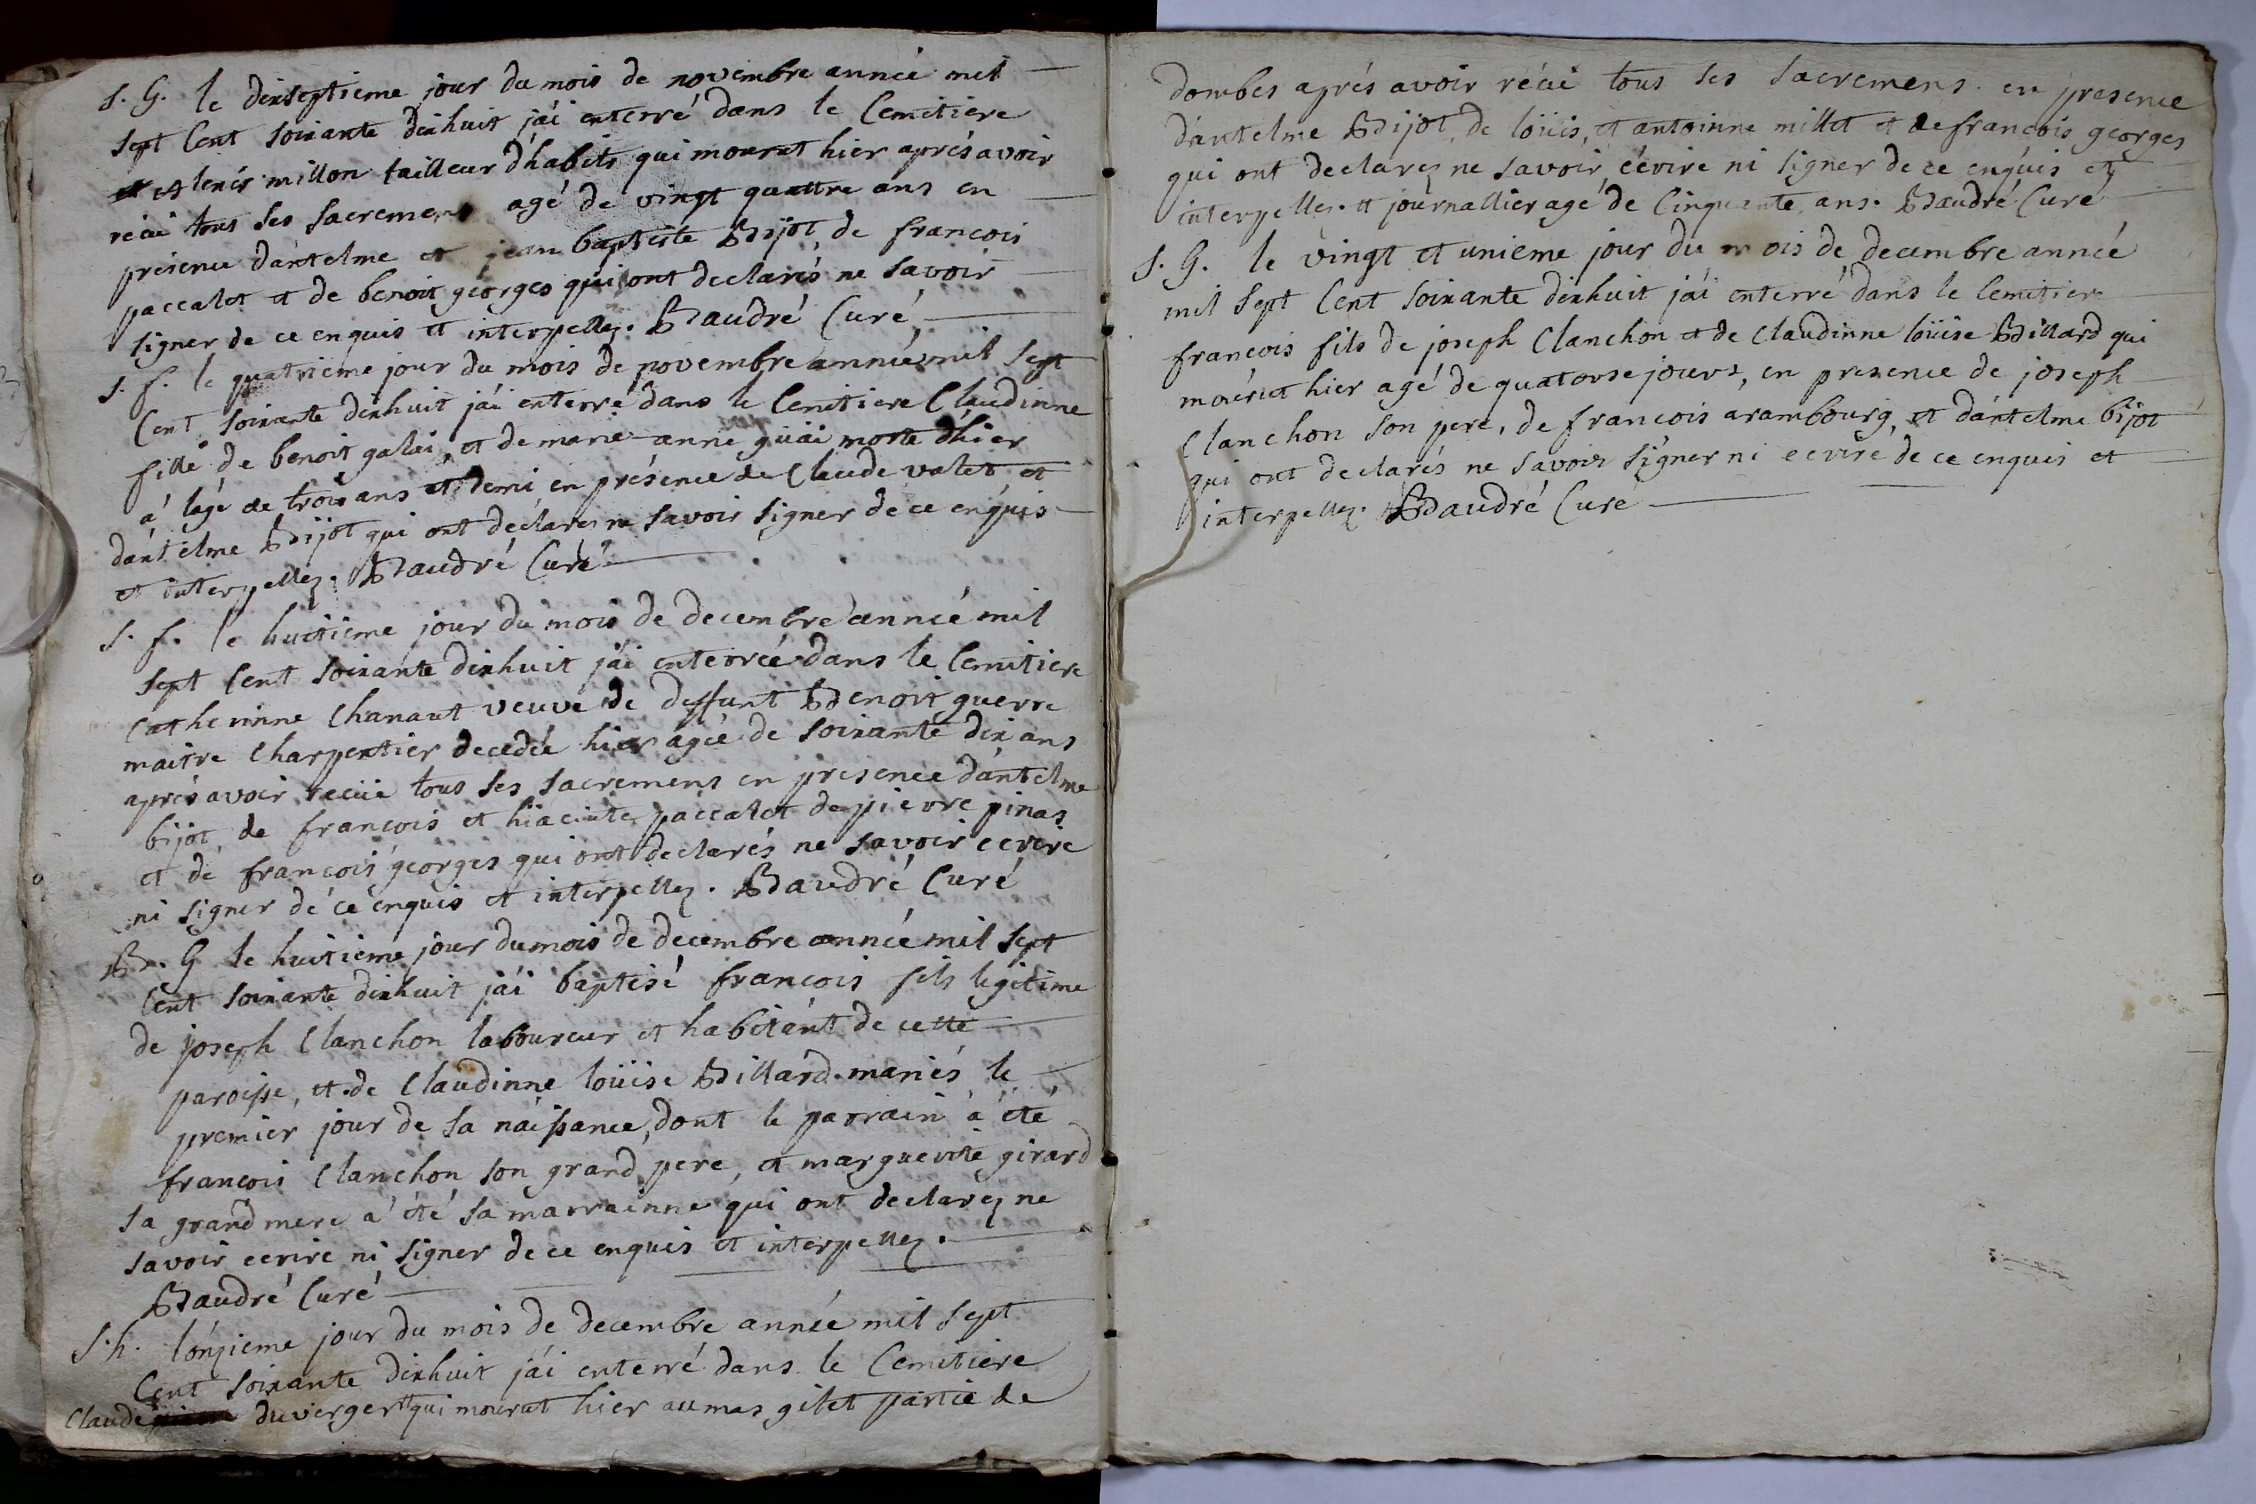 S. G. le dixseptieme jour du mois de novembre année mil
sept Cent soixante dixhuit j'ai enterré dans le Cemitiere
millon tailleur d'habits qui mourut hier aprés avoir
réciu tous ses sacremens agé de vingt quattre ans en
presence d'antelme et jean baptiste Bijot de francois
paccalet et de benoit georges qui ont declarés ne savoir
signer de ce enquis et interpellez. Baudré Curé
S. f. le quatrieme jour du mois de novembre année mil sept
Cent soixante dixhuit j'ai enterré dans le Cemitiere Claudinne
fille de benoit galai, et de marie anne guai morte d'hier
á lagé de trois ans et demi en présence de Claude valet et
d'antelme Bijot qui ont declarez ne savoir signer de ce enquis
et interpellez. Baudré Curé
S. f. le huitieme jour du mois de decembre année mil
sept Cent soixante dixhuit j'ai enterrée dans le Cemitiere
Catherinne Chanaut veuve de deffunt Benoit guerre
maitre Charpentier decedée hier agée de soixante dix ans
aprés avoir reciüe tous ses sacremens en presence d'antelme
bijot, de francois et hiacinte paccalet de pierre pinas
et de francois georges qui ont declarés ne savoir ecrire
ni signer de ce enquis et interpellez. Baudré Curé
B. G le huitieme jour du mois de decembre année mil sept
Cent soixante dixhuit j'ai baptisé francois fils legitime
de joseph Clanchon laboureur et habitant de cette
paroisse, et de Claudinne loüise Billard mariés le
premier jour de sa naissance, dont le parrain á été
francois Clanchon son grand pere, et marguerite girard
sa grand mere á été sa marrainne qui ont declarez ne
savoir ecrire ni signer de ce enquis et interpellez.
Baudré Curé
S. h. l'onzieme jour du mois de decembre année mil sept
Cent soixante dixhuit j'ai enterré dans le Cemitiere
Claude duverger qui mourut hier au mas gilet partie de
dombes aprés avoir réciü tous ses sacremens. en presence
d'antelme Bijot, de loüis, et antoinne millet et de francois georges
qui ont declarez ne savoir écrire ni signer de ce enquis et
interpellez. # journallier agé de Cinquante ans. Baudré Curé
S. G. le vingt et unieme jour du mois de decembre année
mil sept Cent soixante dixhuit j'ai enterré dans le Cemitiere
francois fils de joseph Clanchon et de Claudinne loüise Billard qui
mourut hier agé de quatorse jours, en presence de joseph
Clanchon son pere, de francois arambourg, et d'antelme bijot
qui ont declarés ne savoir signer ni ecrire de ce enquis et
interpellez. Baudré Curé